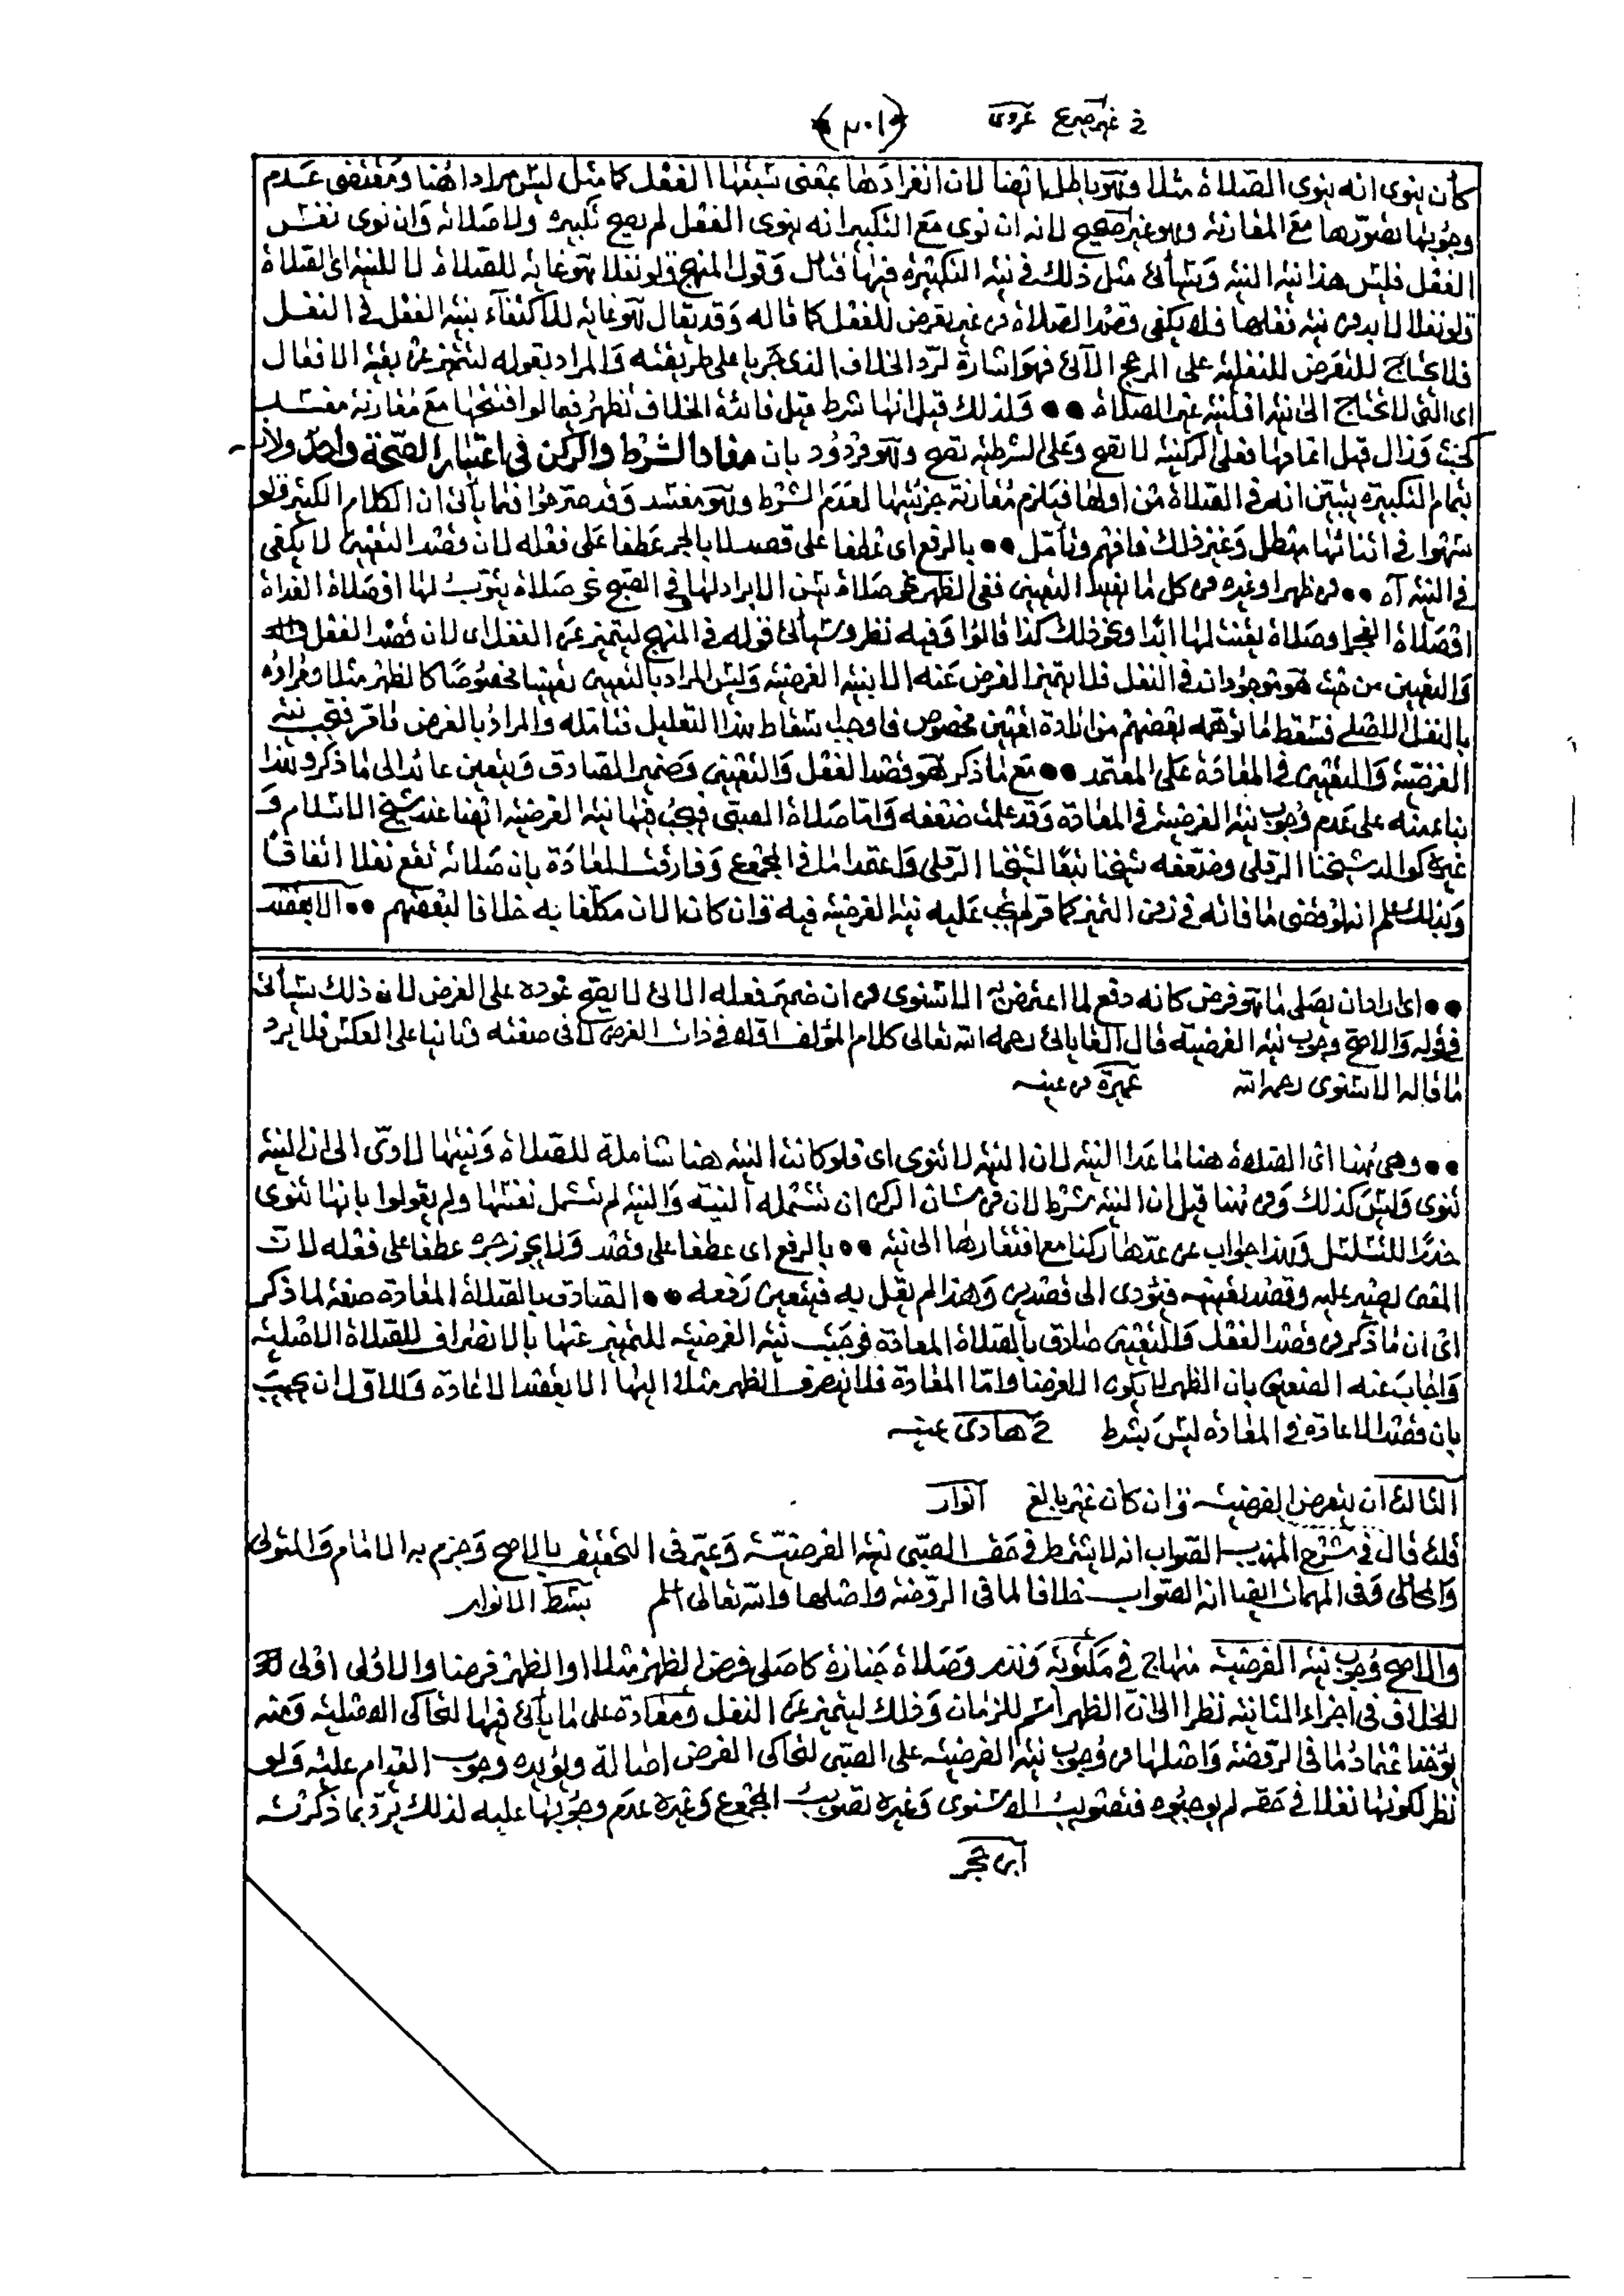 ﴿٣٠١﴾
كأن ينوى انه ينوى الصلاة مثلا وهو باطل ايضا لان انفرادها بمعنى سبقها الفعل كما مثل ليس مرادا هنا ومقتضى عدم
وجوبها تصورها مع المقارنة وهو غير صحيح لانه ان نوى مع التكبير انه ينوى الفعل لم يصح تكبيره ولا صلاته وان نوى نفس
الفعل فليس هذا نية النية وسيأتى مثل ذلك فى نية التكبيرة فيها فتأمل وقول المنهج ولو نفلا هو غاية للصلاة لا للنية اى لصلاة
ولو نفلا لا بد من نية فعلها فلا يكفى قصد الصلاة من غير تعرض للفعل كما قاله وقد يقال هو غاية للاكتفاء بنية الفعل فى النفل
فلا يحتاج للتعرض للنفلية على المرجح الآتى فهو اشارة لرد الخلاف الذى جريا على طريقته والمراد بقوله لتتميز عن بقية الافعال
اى التى لا تحتاج الى نية او لنية غير الصلاة •• ولذلك قيل انها شرط قيل فائدة الخلاف تظهر فيما لو افتتحها مع مقارنة مفسد
كخبث وزال قبل اتمامها فعلى الركنية لا تصح وعلى الشرطية تصح وهو مردود بان مفاد الشرط والركن فى اعتبار الصحة واحد ولانه
بتمام التكبيرة يتبين انه فى الصلاة من اولها فيلزم مقارنة جزئيتها لعدم الشرط وهو مفسد وقد صرحوا فيما يأتى ان الكلام الكثير ولو
سهوا فى اثنائها مبطل وغير ذلك فافهم وتأمل •• بالرفع اى عطفا على قصد لا بالجر عطفا على فعله لان قصد التعيين لا يكفى
فى النية اه •• من ظهر او غيره من كل ما يفيد التعيين ففى الظهر نحو صلاة يسن الابراد لها وفى الصبح نحو صلاة يثوب لها او صلاة الغداة
او صلاة الفجر او صلاة يقنت لها ابدا ونحو ذلك كذا قالوا وفيه نظر وسيأتى قوله فى المنهج ليتميز عن الفعل اى لان قصد الفعل
والتعيين من حيث هو موجودان فى النفل فلا يتميز الفرض عنه الا بنية الفرضية وليس المراد بالتعيين تعيينا مخصوصا كالظهر مثلا ومراده
بالنفل للمصلى فسقط ما توهمه بعضهم من ارادة تعيين مخصوص فاوجب سقاط هذا التعليل فتأمله والمراد بالفرض ما مر فتجب نية
الفرضية والتعيين فى المعادة على المعتمد •• مع ما ذكر هو قصد الفعل والتعيين وضمير الصادق وبتعين عائد الى ما ذكر وهذا
بناء منه على عدم وجوب نية الفرضية فى المعادة وقد علمت ضعفه واما صلاة الصبى فيجب فيها نية الفرضية ايضا عند شيخ الاسلام و
غيره كوالد شيخنا الرملى وضعفه شيخنا تبعا لشيخنا الرملى واعتمد ما فى المجموع وفارقت المعادة بان صلاته تقع نفلا اتفاقا
وبذلك علم انه لو قضى ما فاته فى زمن التميز كما مر لم يجب عليه نية الفرضية فيه وان كان الان مكلفا به خلافا لبعضهم •• الا بقصد
•• اى اراد ان يصلى ما هو فرض كانه دفع لما اعترض به الاسنوى من ان ضمير فعله الآتى لا يصح عوده على الفرض لان ذلك سيأتى
فى قوله والاصح وجوب نية الفرضية قال القاياتى رحمه الله تعالى كلام المؤلف اولا فى ذات الفرض لا فى صفته وثانيا على العكس فلا يرد
ما قاله الاسنوى رحمه الله عميرة من عينه
•• وهى هنا اى الصلاة هنا ما عدا النية لان النية لا تنوى اى فلو كانت النية هنا شاملة للصلاة ونيتها لادى الى ان النية
تنوى وليس كذلك ومن هنا قيل ان النية شرط لان من شان الركن ان تشتمله النية والنية لم تشمل نفسها ولم يقولوا بانها تنوى
حذرا للتسلسل وهذا جواب عن عدها ركنا مع افتقارها الى نية •• بالرفع اى عطفا على قصد ولا يجوز جره عطفا على فعله لان
المعنى يصير عليه وقصد تعيينه فيؤدى الى قصدين وهذا لم يقل به فيتعين رفعه •• الصادق بالصلاة المعادة صفة لما ذكر
اى ان ما ذكر من قصد الفعل والتعيين صادق بالصلاة المعادة فوجب نية الفرضية للتمييز عنها بالانصراف للصلاة الاصلية
واجاب عنه المصنف بان الظهر لا يكون الا فرضا واما المعادة فلا ينصرف الظهر مثلا اليها الا بقصد الاعادة وللاول ان يجيب
بان قصد الاعادة فى المعادة ليس بشرط ح هادى عينه
الثالث ان يتعرض لفرضيته وان كان غير بالغ انوار
قلت قال فى شرح المهذب الصواب انه لا يشترط فى حق الصبى نية الفرضية وعبر فى التحقيق بالاصح وجزم به الامام والمتولى
والمحاملى وفى المهمات ايضا انه الصواب خلافا لما فى الروضة واصلها والله تعالى اعلم بسط الانوار
والاصح وجوب نية الفرضية منهاج فى مكتوبة ونذر وصلاة جنازة كاصلى فرض الظهر مثلا او الظهر فرضا والاولى اولى
للخلاف فى اجزاء الثانية نظرا الى ان الظهر اسم للزمان وذلك ليتميز عن النفل ومعادة على ما يأتى فيها لتحاكى الاصلية ومنه
يؤخذ اعتماد ما فى الروضة واصلها من وجوب نية الفرضية على الصبى لتحاكى الفرض اصالة ويؤيده وجوب القيام عليه ولو
نظر لكونها نفلا فى حقه لم يوجبوه فتصويب الاسنوى وغيره تصويب المجموع وغيره عدم وجوبها عليه لذلك يرد بما ذكرته
ابن حجر